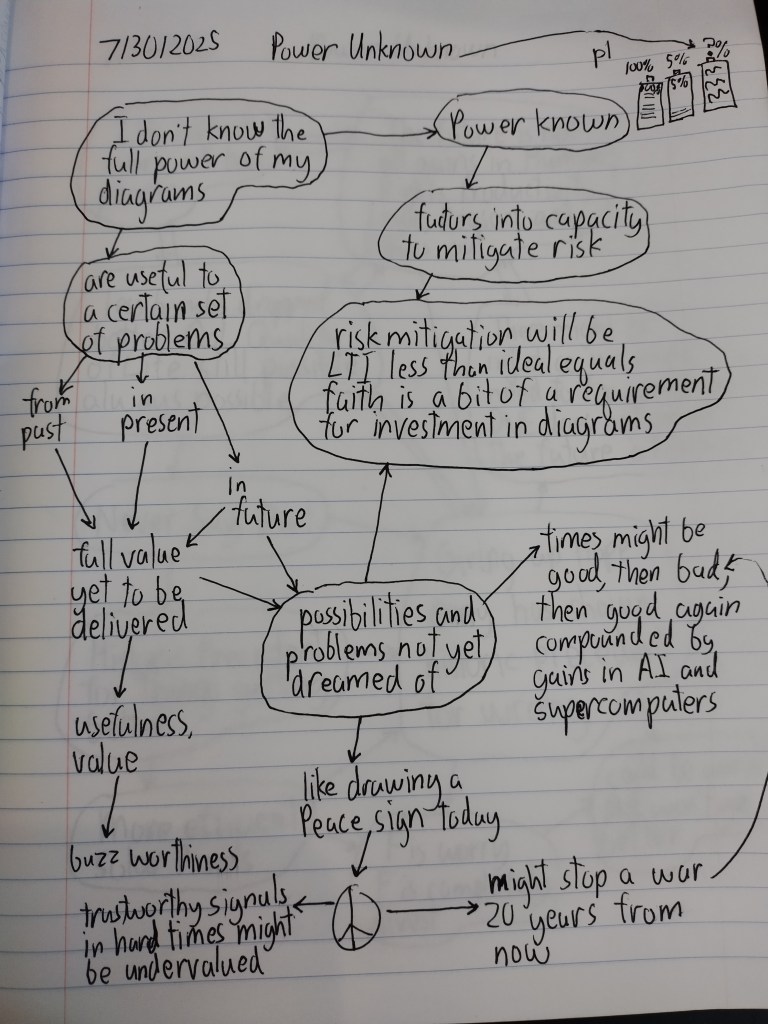 7/30/2025 Power Unknown p1
100% 5% ?%
5%
???
I don't know the
full power of my
diagrams
Power known
futurs into capacity
to mitigate risk
are useful to
a certain set
of problems
risk mitigation will be
LTI less than ideal equals
faith is a bit of a requirement
for investment in diagrams
from
past
in
present
in
future
full value
yet to be
delivered
possibilities and
problems not yet
dreamed of
times might be
good, then bad,
then good again
compounded by
gains in AI and
supercomputers
usefulness,
value
like drawing a
Peace sign today
buzz worthiness
trustworthy signals
in hard times might
be undervalued
might stop a war
20 years from
now